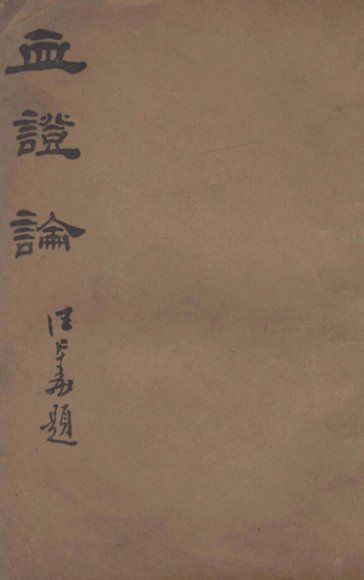 血證論
汪 題